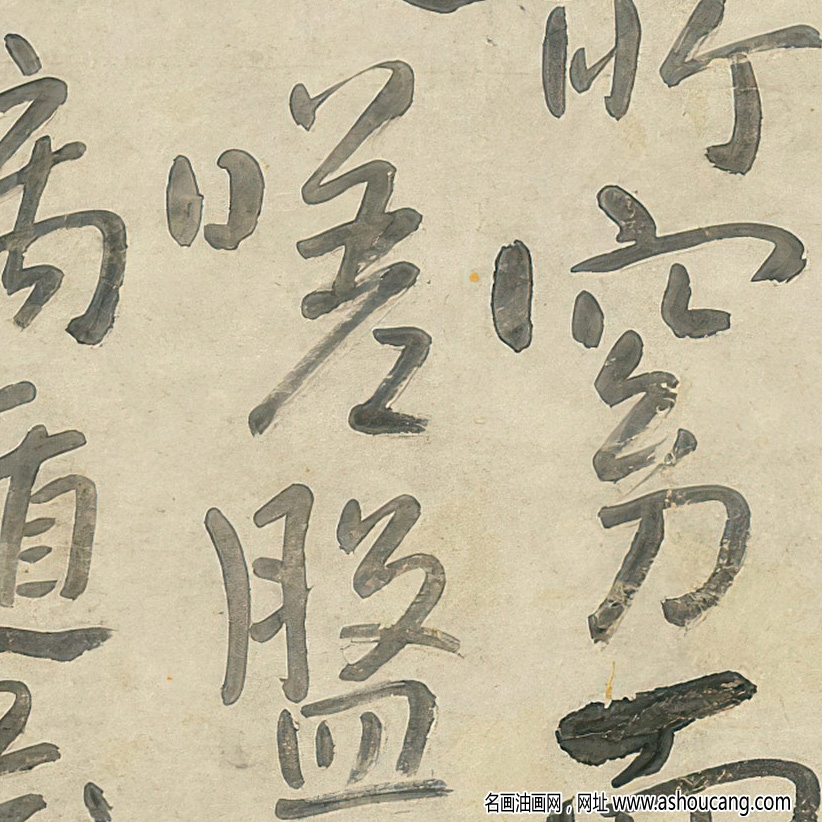 所窈而
嗟盤
遁
名画油画网，网址 www.ashoucang.com